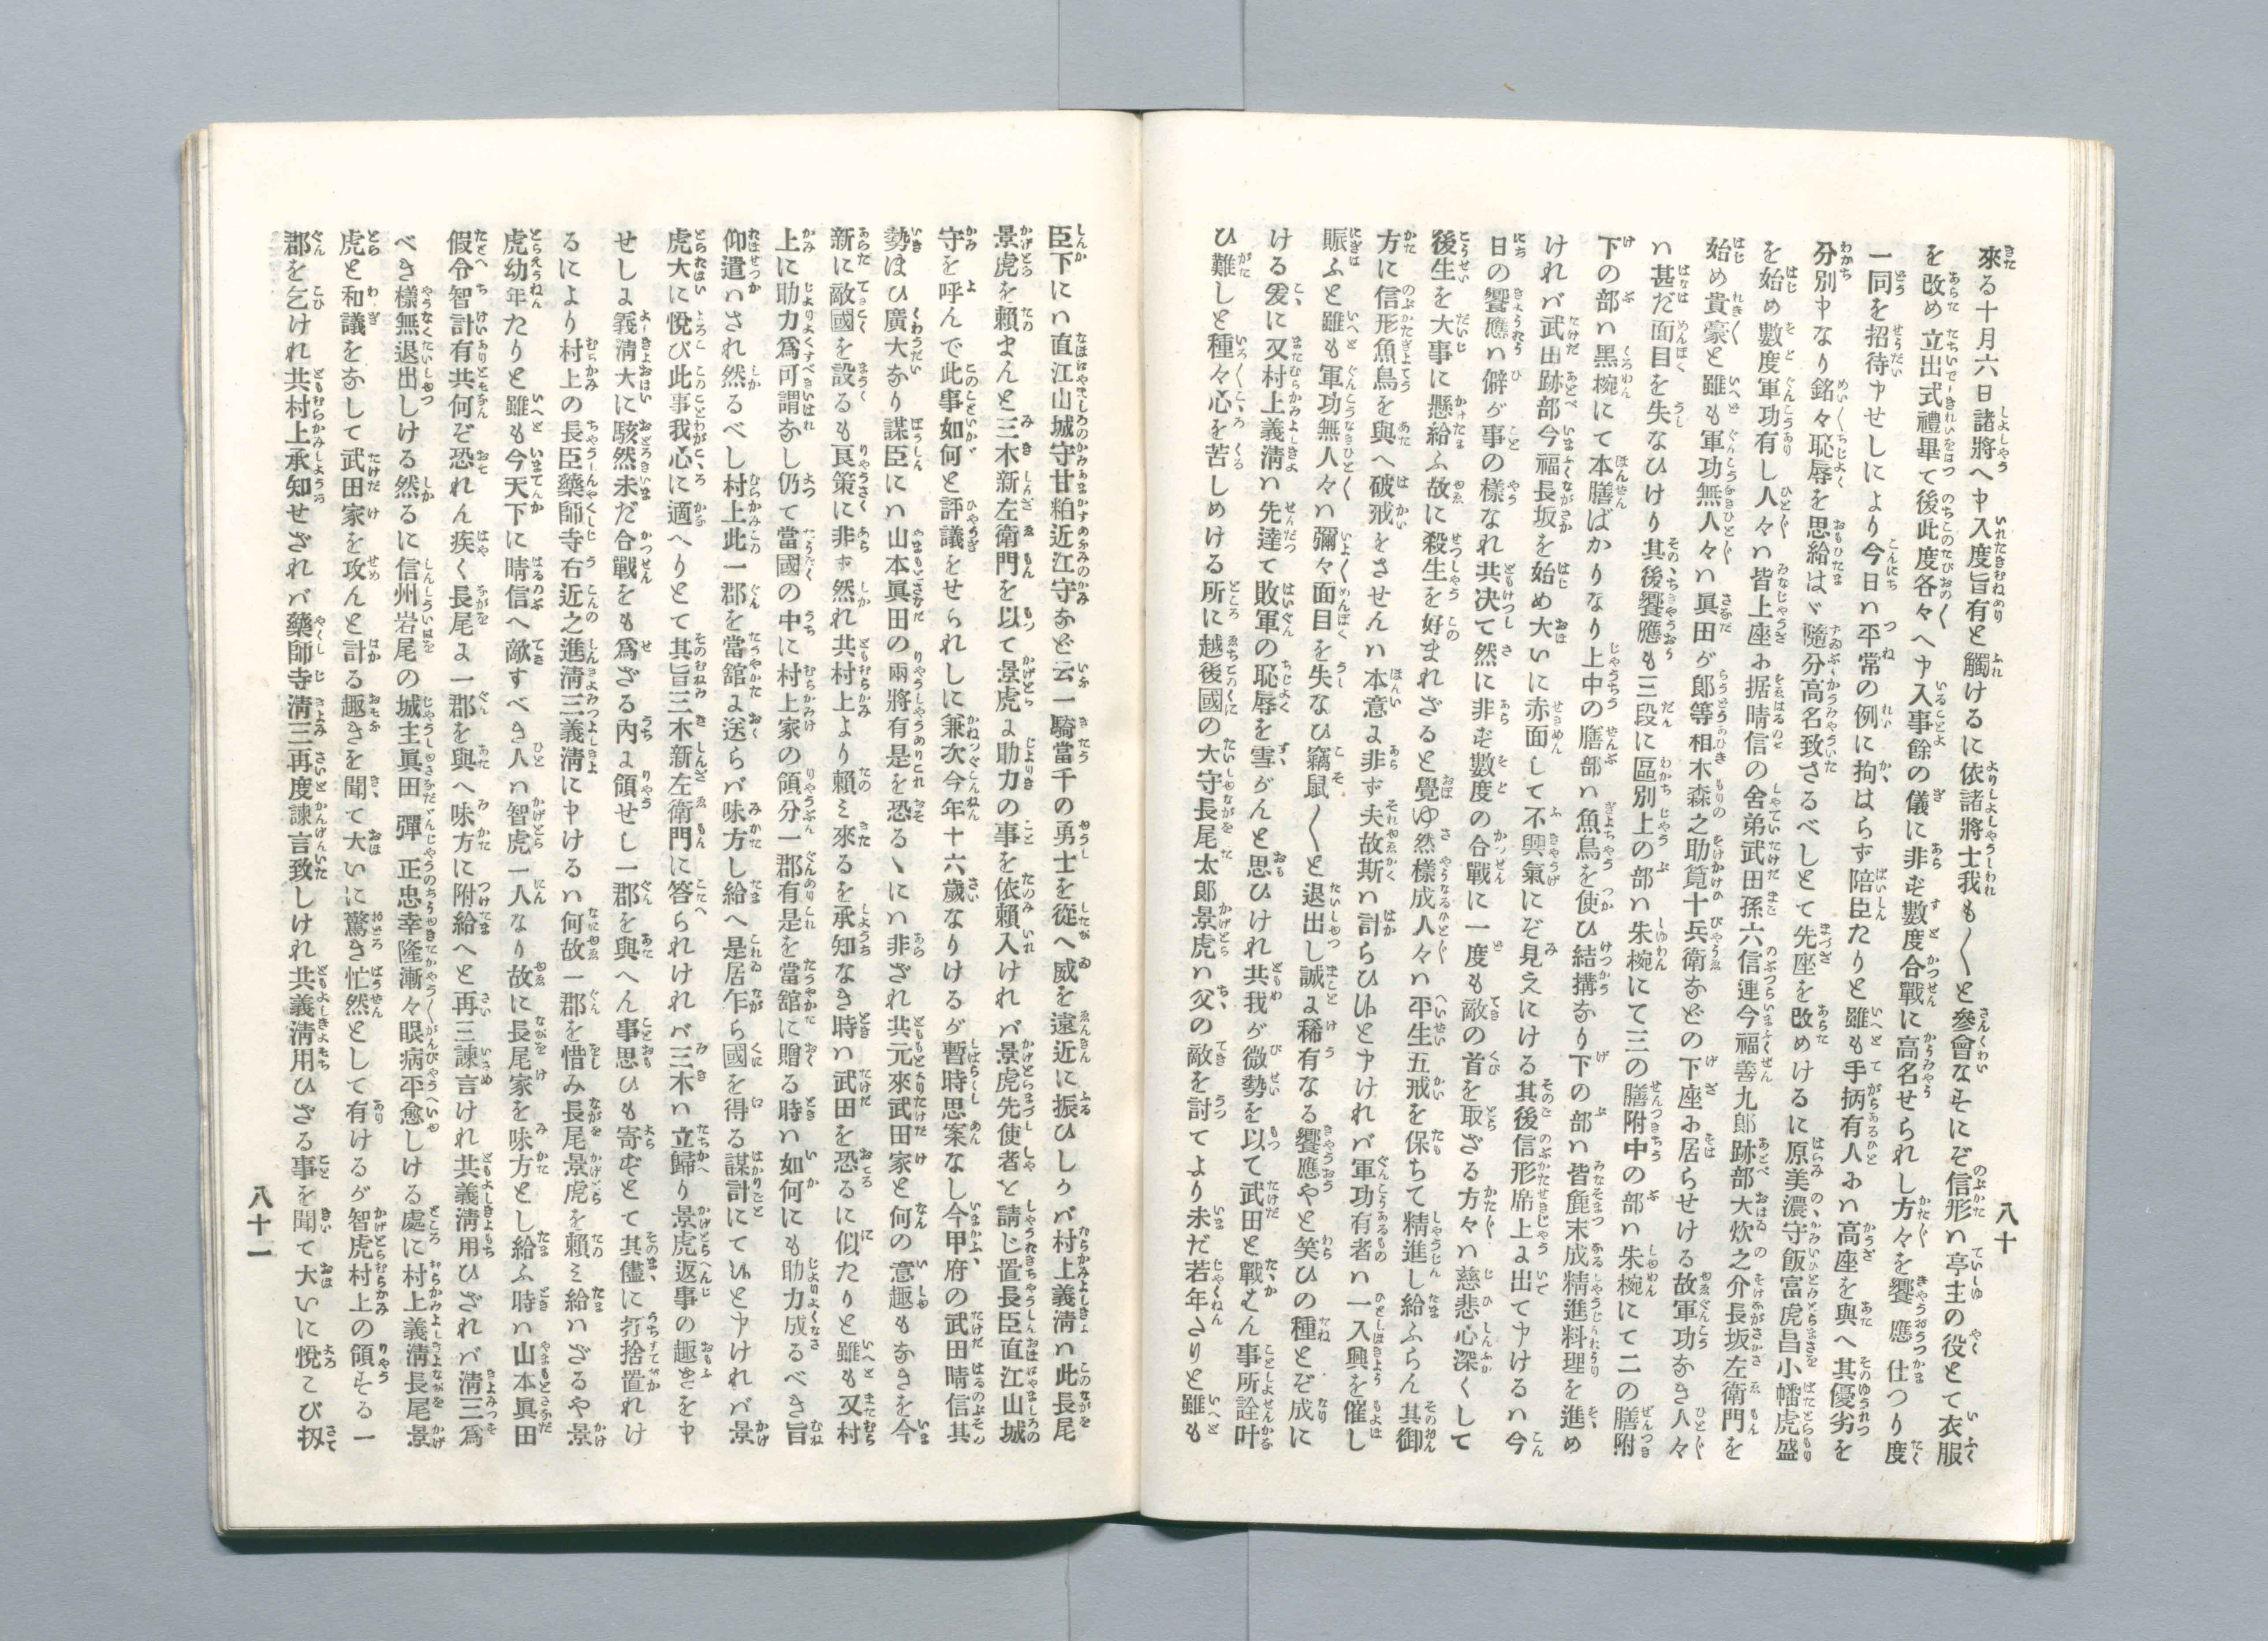 八十
來る十月六日諸將へ申入度旨有と觸けるに依諸將士我も〳〵と參會なすにぞ信形ハ亭主の役とて衣服
を改め立出式禮畢て後此度各々へ申入事餘の儀に非ず數度合戰に高名せられし方々を饗應仕つり度
一同を招待申せしにより今日ハ平常の例に拘はらず陪臣たりと雖も手柄有人ハ高座を與へ其優劣を
分別申なり銘々恥辱を思給はゞ隨分高名致さるべしとて先座を改めけるに原美濃守飯富虎昌小幡虎盛
を始め數度軍功有し人々ハ皆上座に据晴信の舍弟武田孫六信連今福善九郎跡部大炊之介長坂左衛門を
始め貴豪と雖も軍功無人々ハ眞田が郎等相木森之助筧十兵衛などの下座に居らせける故軍功なき人々
ハ甚だ面目を失なひけり其後饗應も三段に區別上の部ハ朱椀にて三の膳附中の部ハ朱椀にて二の膳附
下の部ハ黑椀にて本膳ばかりなり上中の膳部ハ魚鳥を使ひ結搆なり下の部ハ皆麁末成精進料理を進め
けれバ武田跡部今福長坂を始め大いに赤面して不興氣にぞ見えにける其後信形席上に出て申けるハ今
日の饗應ハ僻が事の樣なれ共决て然に非ず數度の合戰に一度も敵の首を取ざる方々ハ慈悲心深くして
後生を大事に懸給ふ故に殺生を好まれざると覺ゆ然樣成人々ハ平生五戒を保ちて精進し給ふらん其御
方に信形魚鳥を與へ破戒をさせんハ本意に非ず夫故斯ハ計らひ候と申けれバ軍功有者ハ一入興を催し
賑ふと雖も軍功無人々ハ彌々面目を失なひ竊鼠〳〵と退出し誠に稀有なる饗應やと笑ひの種とぞ成に
ける爰に又村上義淸ハ先達て敗軍の恥辱を雪がんと思ひけれ共我が微勢を以て武田と戰はん事所詮叶
ひ難しと種々心を苦しめける所に越後國の大守長尾太郎景虎ハ父の敵を討てより未だ若年さりと雖も
臣下にハ直江山城守甘粕近江守など云一騎當千の勇士を從へ威を遠近に振ひしかバ村上義淸ハ此長尾
景虎を賴まんと三木新左衛門を以て景虎に助力の事を依賴入けれバ景虎先使者を請じ置長臣直江山城
守を呼んで此事如何と評議をせられしに兼次今年十六歲なりけるが暫時思案なし今甲府の武田晴信其
勢ほひ廣大なり謀臣にハ山本眞田の兩將有是を恐るゝにハ非ざれ共元來武田家と何の意趣もなきを今
新に敵國を設るも良策に非ず然れ共村上より賴ミ來るを承知なき時ハ武田を恐るに似たりと雖も又村
上に助力爲可謂なし仍て當國の中に村上家の領分一郡有是を當舘に贈る時ハ如何にも助力成るべき旨
仰遣ハされ然るべし村上此一郡を當舘に送らバ味方し給へ是居乍ら國を得る謀計にて候と申けれバ景
虎大に悅び此事我心に適へりとて其旨三木新左衛門に答られけれバ三木ハ立歸り景虎返事の趣きを申
せしに義淸大に駭然未だ合戰をも爲ざる內に領せし一郡を與へん事思ひも寄らずとて其儘に打捨置れけ
るにより村上の長臣藥師寺右近之進淸三義淸に申けるハ何故一郡を惜み長尾景虎を賴ミ給ハざるや景
虎幼年たりと雖も今天下に晴信へ敵すべき人ハ智虎一人なり故に長尾家を味方とし給ふ時ハ山本眞田
假令智計有共何ぞ恐れん疾く長尾に一郡を與へ味方に附給へと再三諫言けれ共義淸用ひざれバ淸三爲
べき樣無退出しける然るに信州岩尾の城主眞田彈正忠幸隆漸々眼病平愈しける處に村上義淸長尾景
虎と和議をなして武田家を攻んと計る趣きを聞て大いに驚き忙然として有けるが智虎村上の領する一
郡を乞けれ共村上承知せざれバ藥師寺淸三再度諫言致しけれ共義淸用ひざる事を聞て大いに悅こび扨
八十一